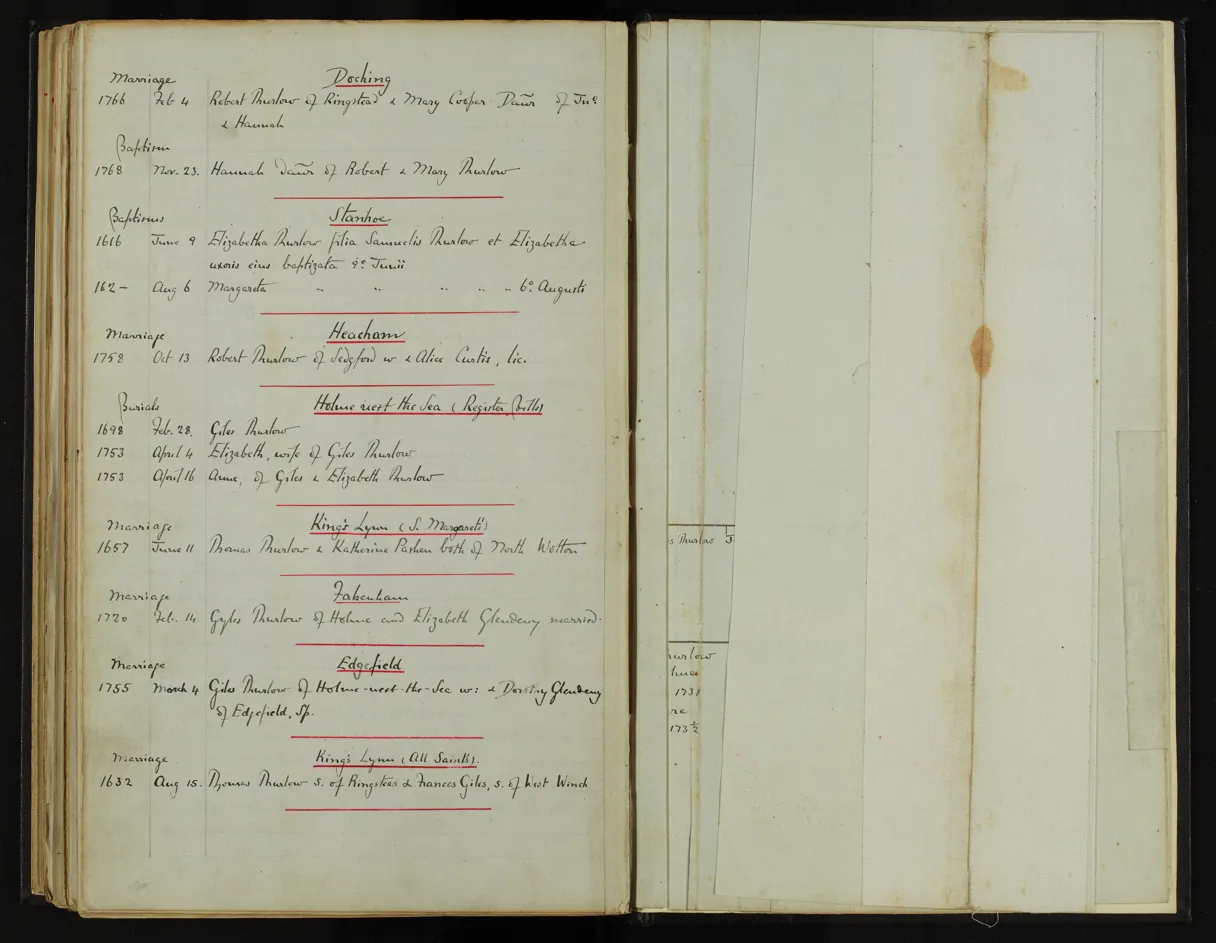 Marriage Docking
1766 Feb 4 Robert Thurlow of Ringstead & Mary Cooper Daur of Jno
& Hannah
Baptism
1768 Nov. 23. Hannah Daur of Robert & Mary Thurlow
Baptisms Stanhoe
1616 June 9 Elizabetha Thurlow filia Samuelis Thurlow et Elizabetha
uxoris eius baptizata 9o Junii
162- Aug 6 Margareta " " " " " 6o Augusti
Marriage Heacham
1758 Oct 13 Robert Thurlow of Sedgford w & Alice Curtis, lic.
Burials Holme next the Sea (Register bills)
1698 Feb. 28. Giles Thurlow
1753 April 4 Elizabeth, wife of Giles Thurlow
1753 April 16 Anne, of Giles & Elizabeth Thurlow
Marriage King's Lynn (S. Margaret's)
1657 June 11 Thomas Thurlow & Katherine Pashen both of North Wotton
Marriage Fakenham
1720 Feb. 14 Gyles Thurlow of Holme and Elizabeth Glendeny married.
Marriage Edgefield
1755 March 4 Giles Thurlow of Holme-next-the-Sea w: & Dorothy Glendeny
of Edgefield, Sp.
Marriage King's Lynn (All Saints).
1632 Aug 15. Thomas Thurlow s. of Ringstead & Frances Giles, s. of West Winch
s Thurlow J
hurlow
1731
re
173½